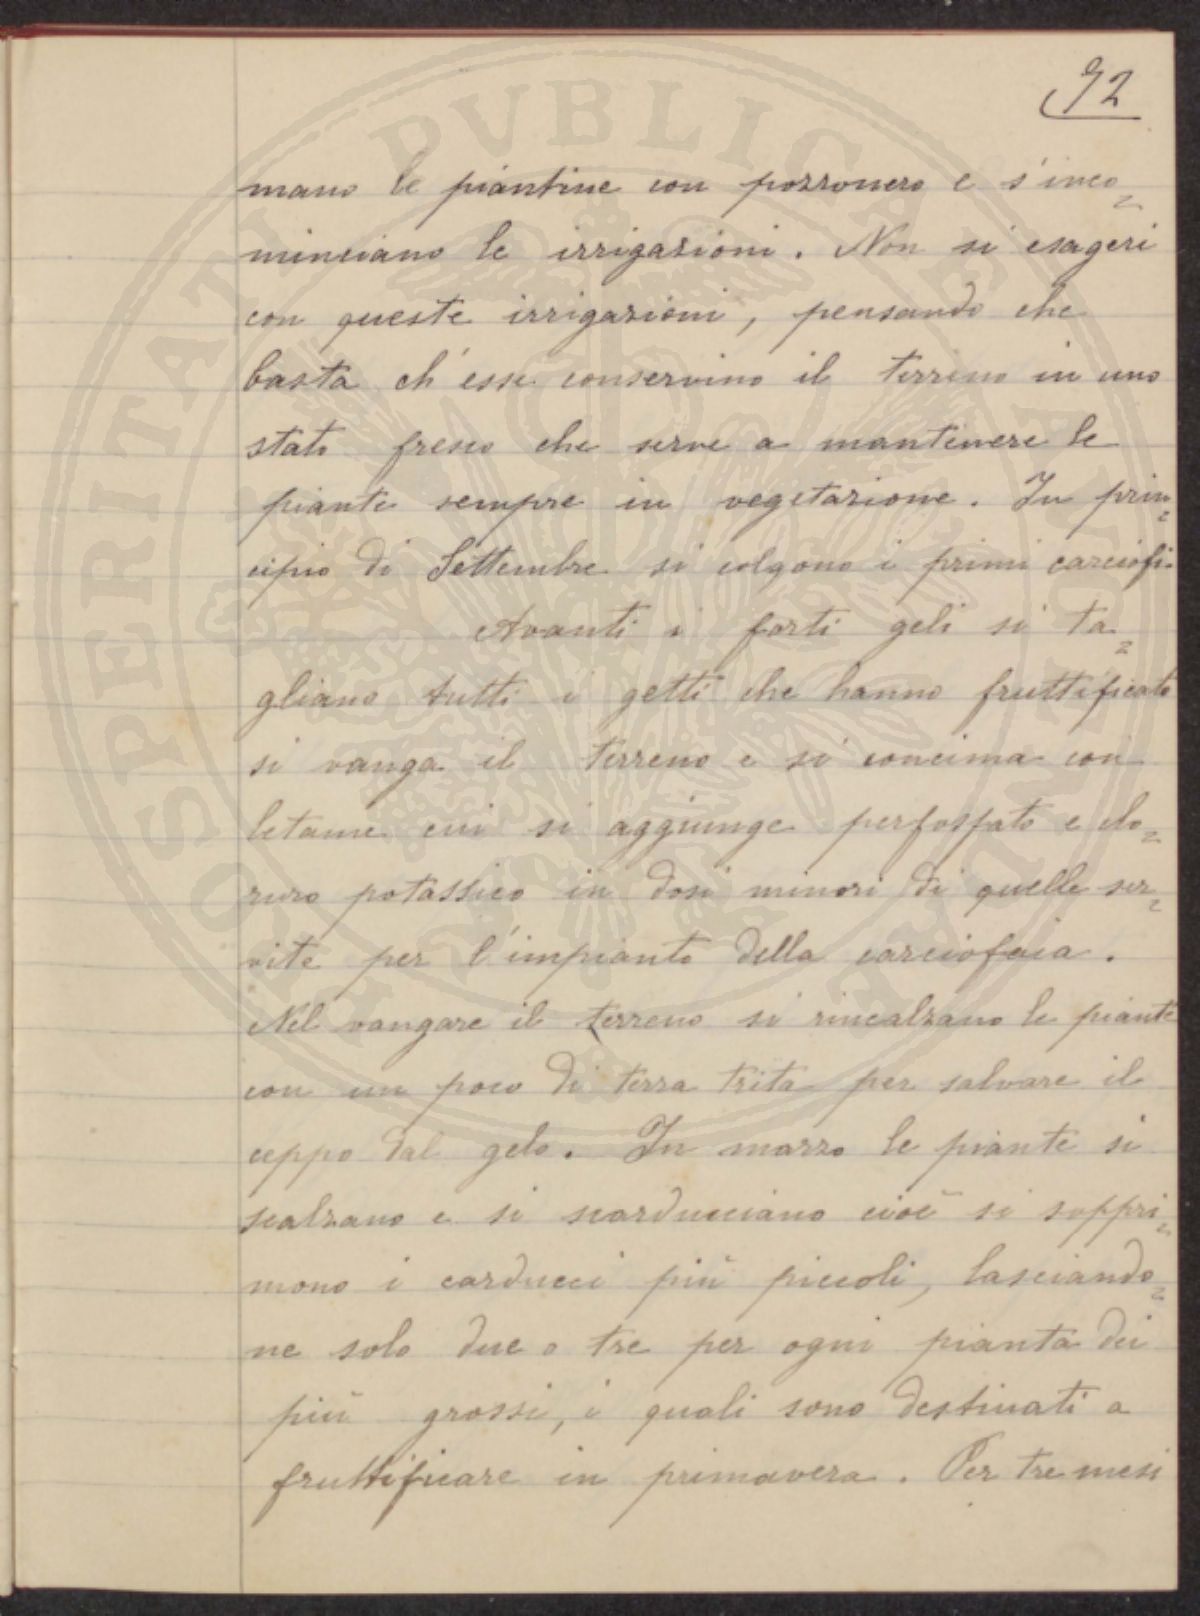 92
mano le piantine con pozzonero e s'inco=
minciano le irrigazioni. Non si esageri
con queste irrigazioni, pensando che
basta ch'esse conservino il terreno in uno
stato fresco che serve a mantenere le
piante sempre in vegetazione. In prin=
cipio di Settembre si colgono i primi carciofi.
Avanti i forti geli si ta=
gliano tutti i getti che hanno fruttificato
si vanga il terreno e si concima con
letame cui si aggiunge perfosfato e clo=
ruro potassico in dosi minori di quelle ser=
vite per l'impianto della carciofaia.
Nel vangare il terreno si rincalzano le piante
con un poco di terra trita per salvare il
ceppo dal gelo. In marzo le piante si
scalzano e si scarducciano cioè si soppri=
mono i carducci più piccoli, lasciando=
ne solo due o tre per ogni pianta dei
più grossi, i quali sono destinati a
fruttificare in primavera. Per tre mesi
PROSPERITATI PVBLICAE AVGENDAE